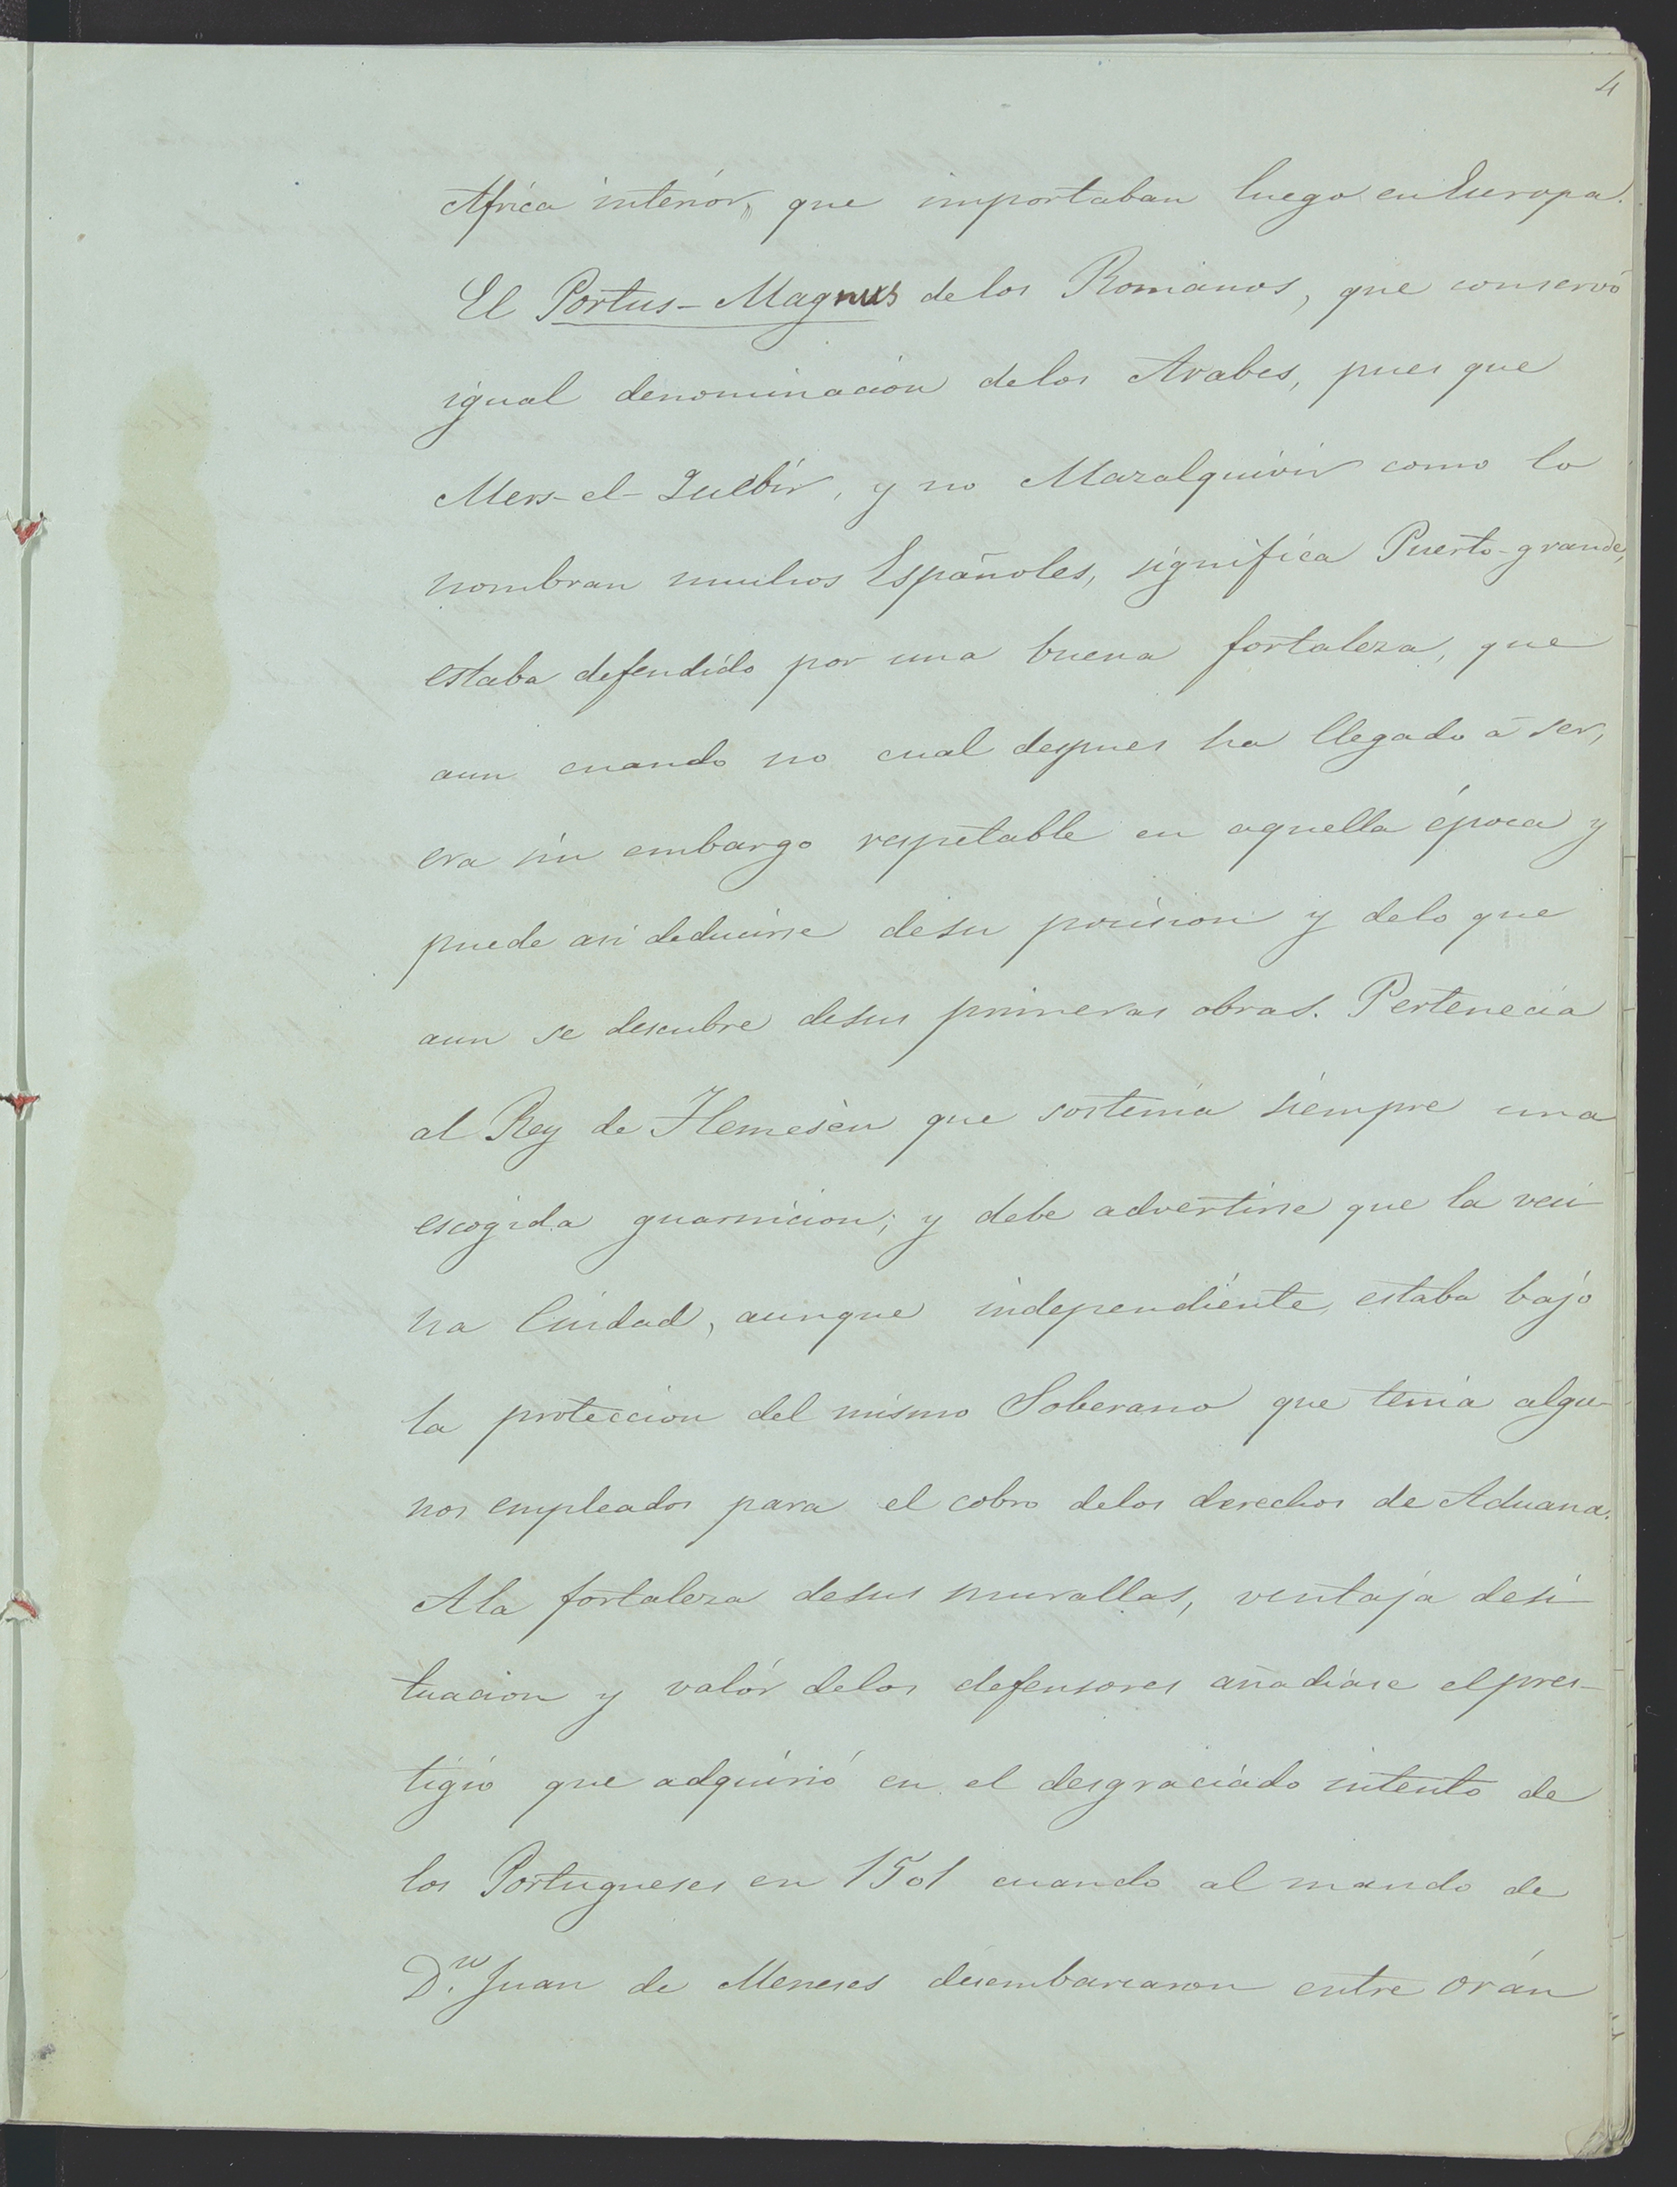 4
Africa interiór, que importaban luego en Europa.
El Portus-Magnus de los Romanos, que conservó
igual denominacion de los Arabes, pues que
Mers-el-Quebir, y no Mazalquivir como lo
nombran muchos Españoles, significa Puerto-grande,
estaba defendido por una buena fortaleza, que
aun cuando no cual despues ha llegado á ser,
era sin embargo respetable en aquella época y
puede asi deducirse de su posicion y de lo que
aun se descubre de sus primeras obras. Pertenecia
al Rey de Tlemesèn que sostenia siempre una
escogida guarnicion; y debe advertirse que la veci-
na Ciudad, aunque independiente, estaba bajo
la proteccion del mismo Soberano que tenia algu-
nos empleados para el cobro de los derechos de Aduana.
A la fortaleza de sus murallas, ventaja de si-
tuacion y valór de los defensores añadiase el pres-
tigio que adquirió en el desgraciado intento de
los Portugueses en 1501 cuando al mando de
D.n Juan de Meneses desembarcaron entre Orán